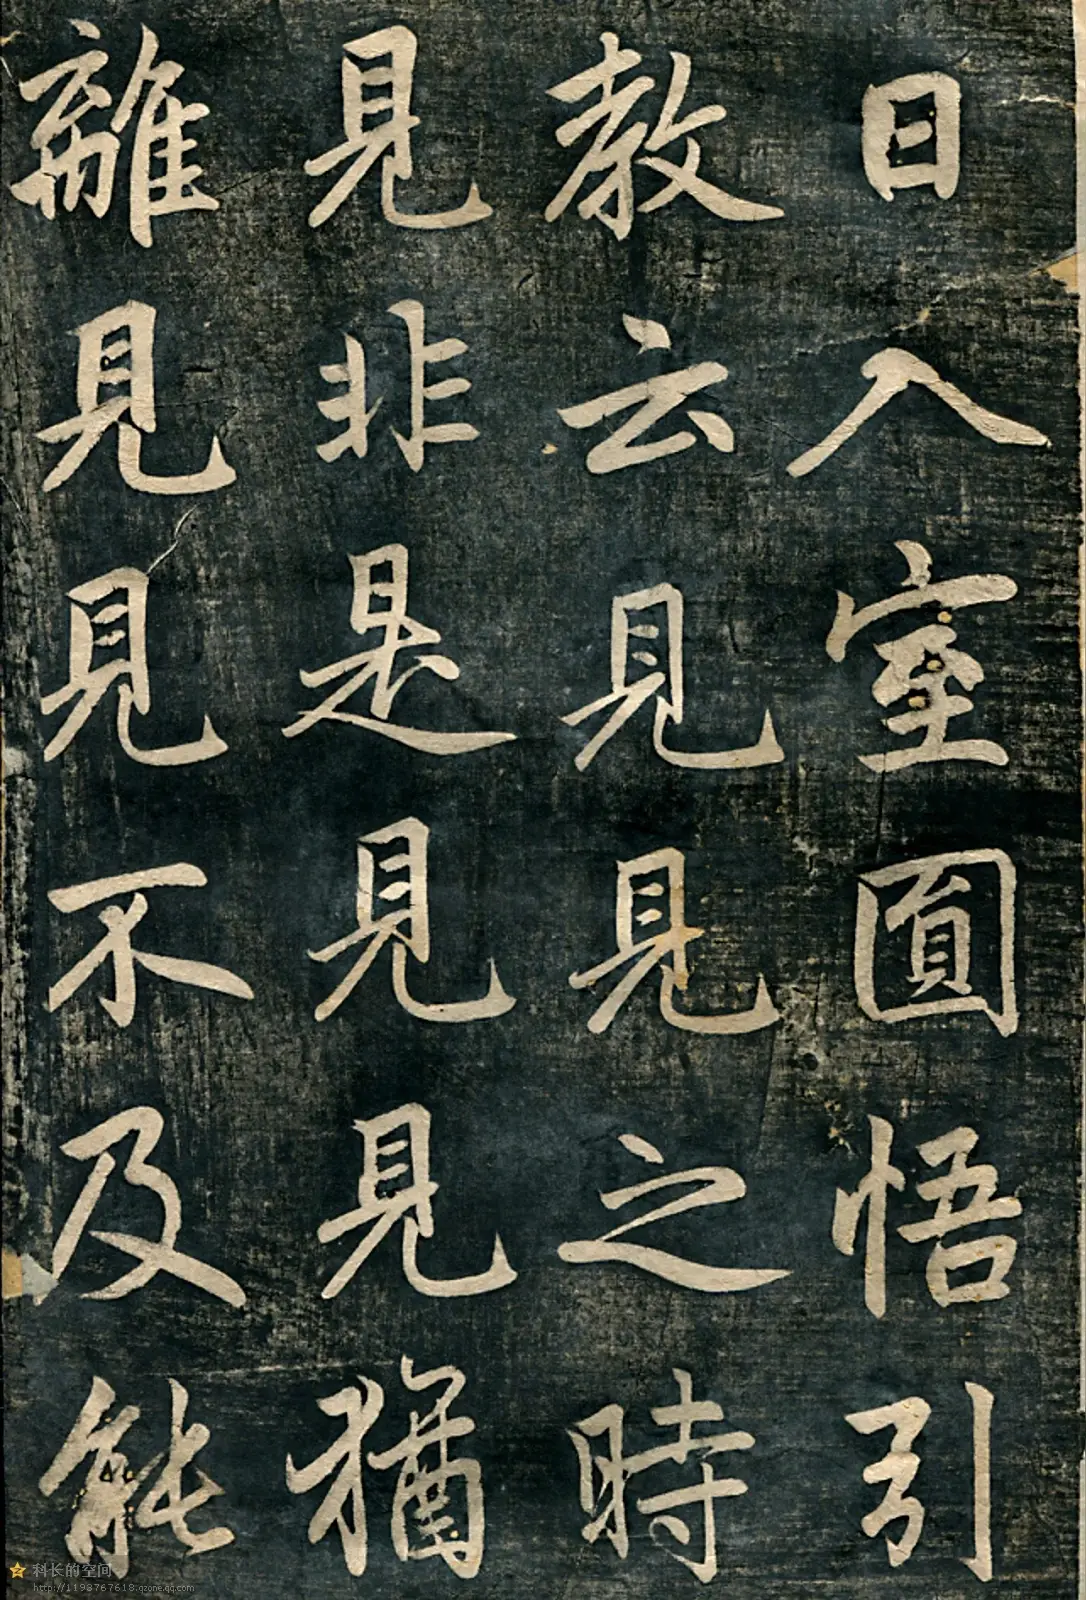 日入室圓悟引
教云見見之時
見非是見見猶
離見見不及能
科长的空间
http://1198767618.qzone.qq.com